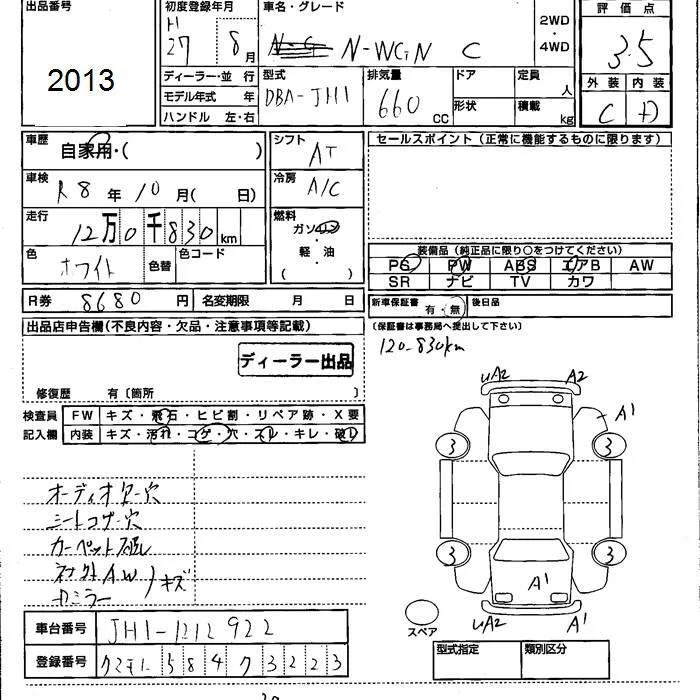 出品番号
2013
初度登録年月
H
27 8月
車名・グレード
N-WGN C
2WD
・
4WD
評価点
3.5
ディーラー・並 行
モデル年式 年
ハンドル 左・右
型式
DBA-JH1
排気量
660 CC
ドア
形状
定員
人
積載
kg
外装 内装
C D
車歴
自家用・( )
シフト
AT
セールスポイント (正常に機能するものに限ります)
車検
R8年10月( 日)
冷房
A/C
走行
12万0千830km
燃料
ガソリン
軽・油
( )
色
ホワイト
色替
色コード
装備品 (純正品に限り○をつけてください)
PS PW ABS エアB AW
SR ナビ TV カワ
R券 8680円
名変期限 月 日
新車保証書 有・無
後日品
(保証書は事務局へ提出して下さい)
出品店申告欄(不良内容・欠品・注意事項等記載)
120-830km
ディーラー出品
修復歴 有〔箇所 〕
検査員
記入欄
FW キズ・飛石・ヒビ割・リペア跡・X要
内装 キズ・汚れ・コゲ・穴・スレ・キレ・破レ
uA2 A2
A1
3 3
3 3
A1
uA2 A1
スペア
シートコゲ・穴
カーペット破レ
AW
キズ
ミラー
車台番号 JH1-1212922
登録番号 58473223
型式指定 類別区分